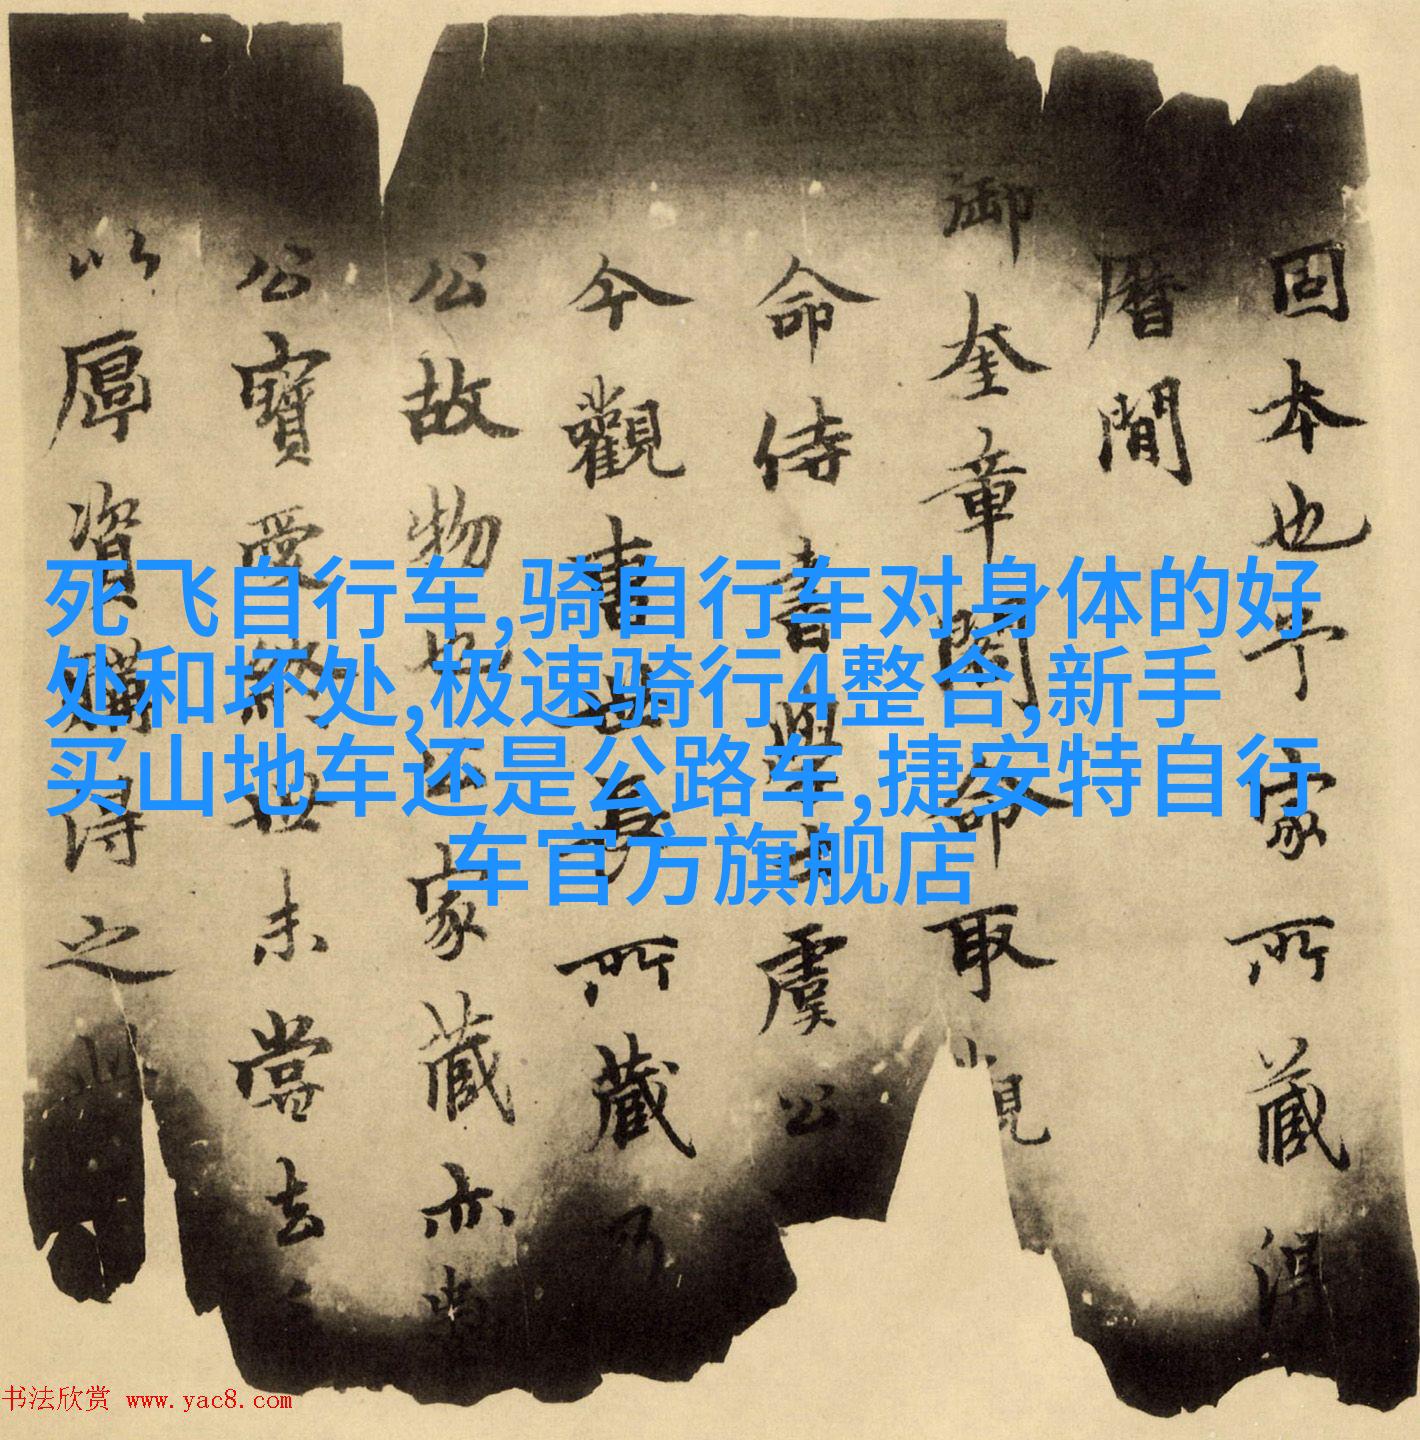 固本也予家所藏淂
曆間
御奎章閣命取觀
命侍書學士虞公
今觀書吾所藏乃
公故物也公家藏亦
公寶愛世未嘗去
以厚資購得之
死飞自行车,骑自行车对身体的好
处和坏处,极速骑行4整合,新手
买山地车还是公路车,捷安特自行
车官方旗舰店
书法欣赏 www.yac8.com